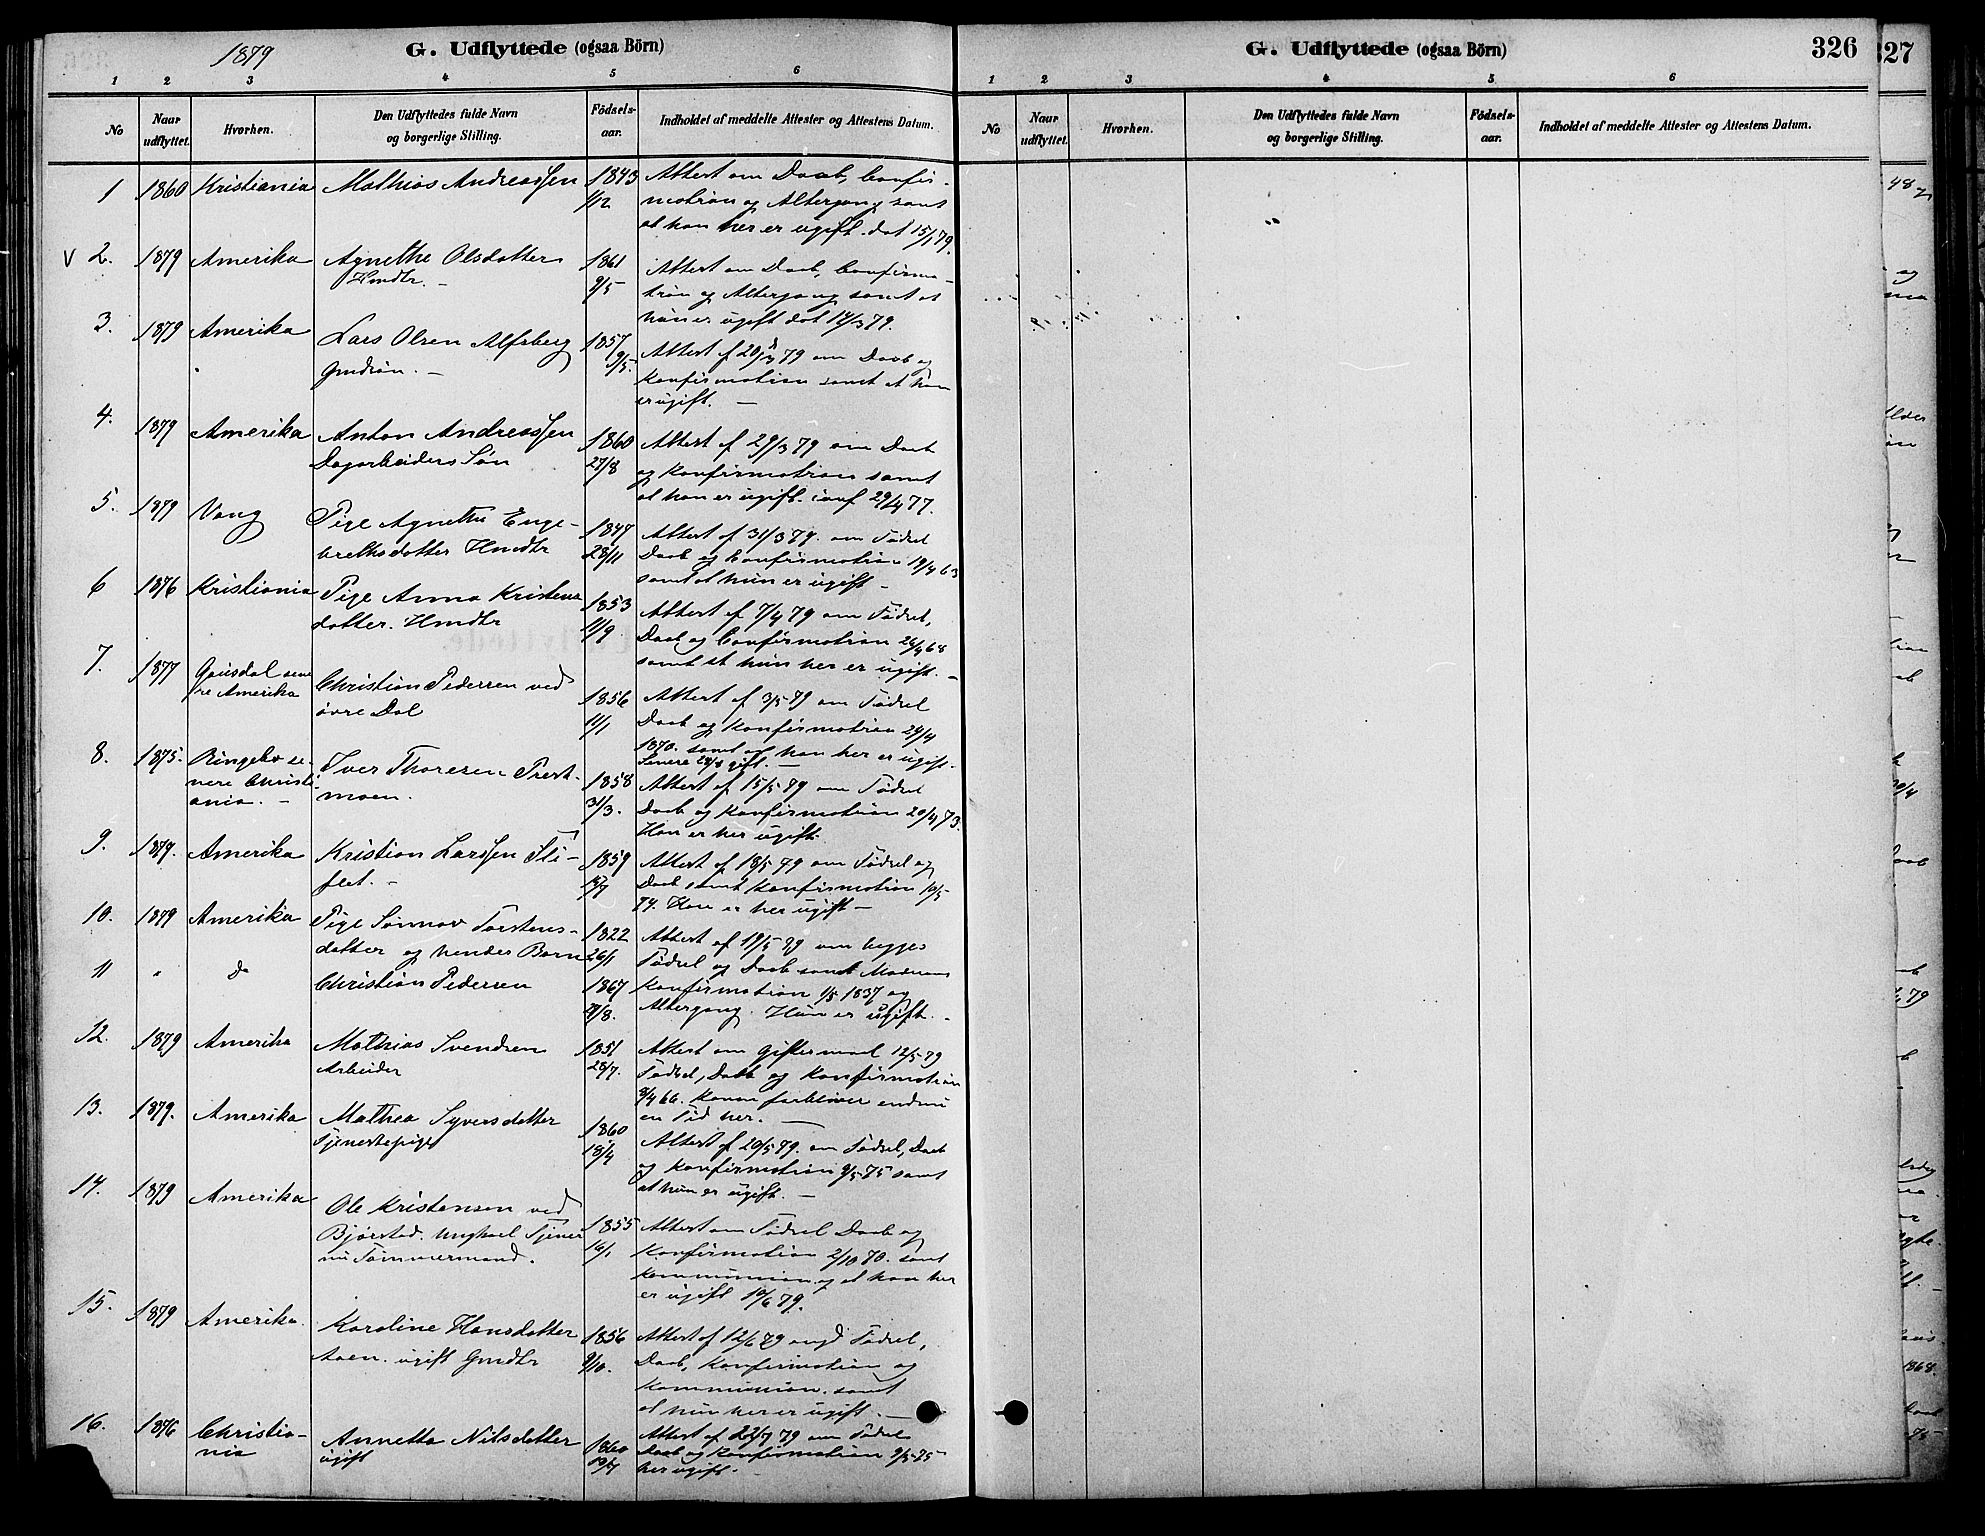 1879
G. Udflyttede (ogsaa Börn)
1 2 3 4 5 6
No
Naar udflyttet.
Hvorhen.
Den Udflyttedes fulde Navn og borgerlige Stilling.
Födselsaar.
Indholdet af meddelte Attester og Attestens Datum.
1 1860 Kristiania Mathias Andreassen 1843 Attest om Daab, Confir-
1/12 mation og Altergang samt
at han her er ugift. dat 15/1 79.
V 2. 1879 Amerika Agnethe Olsdatter 1861 Attest om Daab, Confirma-
Hmdtr. 9/5 tion og Altergang samt at
hun er ugift dat 14/3 79.
3. 1879 Amerika Lars Olsen Alfsberg 1857 Attest af 20/3 79 om Daab og
Gmdsøn. 9/5. Konfirmation samt at han
er ugift.
4. 1879 Amerika Anton Andreassen 1860 Attest af 29/3 79 om Daab
Dagarbeiders Søn 27/8 og Konfirmation samt
at han er ugift. conf 29/4 77.
5. 1879 Vang Pige Agnethe Enge- 1847 Attest af 31/3 79. om Fødsel
brethsdatter Hmdtr 28/11 Daab og Confirmation 19/4 63
samt at hun er ugift
6 1876 Kristiania Pige Anna Kristens 1853 Attest af 7/4 79 om Fødsel,
datter. Hmdtr 11/9 Daab og Confirmation 26/4 68
samt at hun her er ugift.
7. 1877 Gausdal sene Christian Pedersen ved 1856 Attest af 3/5 79 om Fødsel
re Amerika øvre Dal 11/1 Daab og Konfirmation 24/4
1870. samt at han her er ugift.
8. 1875. Ringebo se- Iver Thoresen Prest- 1858 Attest af 15/5 79 om Fødsel
nere Christi moen. 31/3. Daab og Konfirmation 20/4 73.
ania. Han er her ugift.
9. 1879. Amerika Kristian Larssen Sli- 1859 Attest af 18/5 79 om Fødsel og
flet. Daab samt Konfirmation 10/5
74. Han er her ugift
10. 1879 Amerika Pige Sønnov Torstens- 1822 Attest af 19/5 79 om begges
datter og hendes Barn 26/1 Fødsel og Daab samt Moderens
11 " do Christian Pedersen 1867 Konfirmation 1/5 1837 og
Altergang. Hun er ugift.
12. 1879 Amerika Mathias Svendsen 1851 Attest om Giftermaal 12/5 79
Arbeider 28/7. Fødsel, Daab og Konfirmation
8/4 66. Konen forbliver endnu
en Tid her.
13. 1879. Amerika Mathea Syversdatter 1860 Attest af 20/5 79. om Fødsel, Daab
Tjenestepige 18/4 og Konfirmation 9/5 75 samt
at hun er ugift.
14. 1879 Amerika Ole Kristensen ved 1855 Attest om Fødsel Daab og
Bjørstad. Ungkarl Tjener 16/1 Konfirmation 2/10 70. samt
nu Tømmermand. Kommunion og at han her
er ugift 10/6 79.
15. 1879 Amerika. Karoline Hansdatter 1856 Attest af 12/6 79 angd Fødsel,
Aaen. ugift Gmdtr 9/10. Daab, Konfirmation og
Kommunion. samt
at hun her er ugift.
16. 1876 Christia- Annetta Nilsdatter 1860 Attest af 22/7 79 om Fødsel
nia ugift Daab og Konfirmation 9/5 75
her ugift.
G. Udflyttede (ogsaa Börn)
326
1 2 3 4 5 6
No
Naar udflyttet.
Hvorhen.
Den Udflyttedes fulde Navn og borgerlige Stilling.
Födselsaar.
Indholdet af meddelte Attester og Attestens Datum.
327